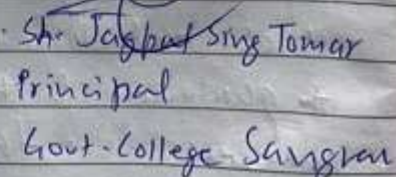 Sh. Jagpat Sing Tomar
Principal
Govt. College Sangrau